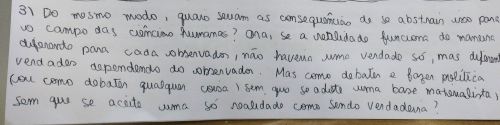 3) Do mesmo modo, quais seriam as consequências de se abstrair isso para
o campo das ciências humanas? Ora, se a realidade funciona de maneira
diferente para cada observador, não haveria uma verdade só, mas diferentes
verdades dependendo do observador. Mas como debater e fazer política
(ou como debater qualquer coisa) sem que se adote uma base materialista,
sem que se aceite uma só realidade como sendo verdadeira?